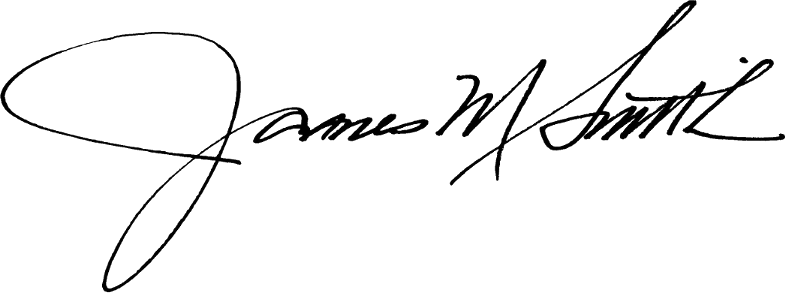 James M Smith